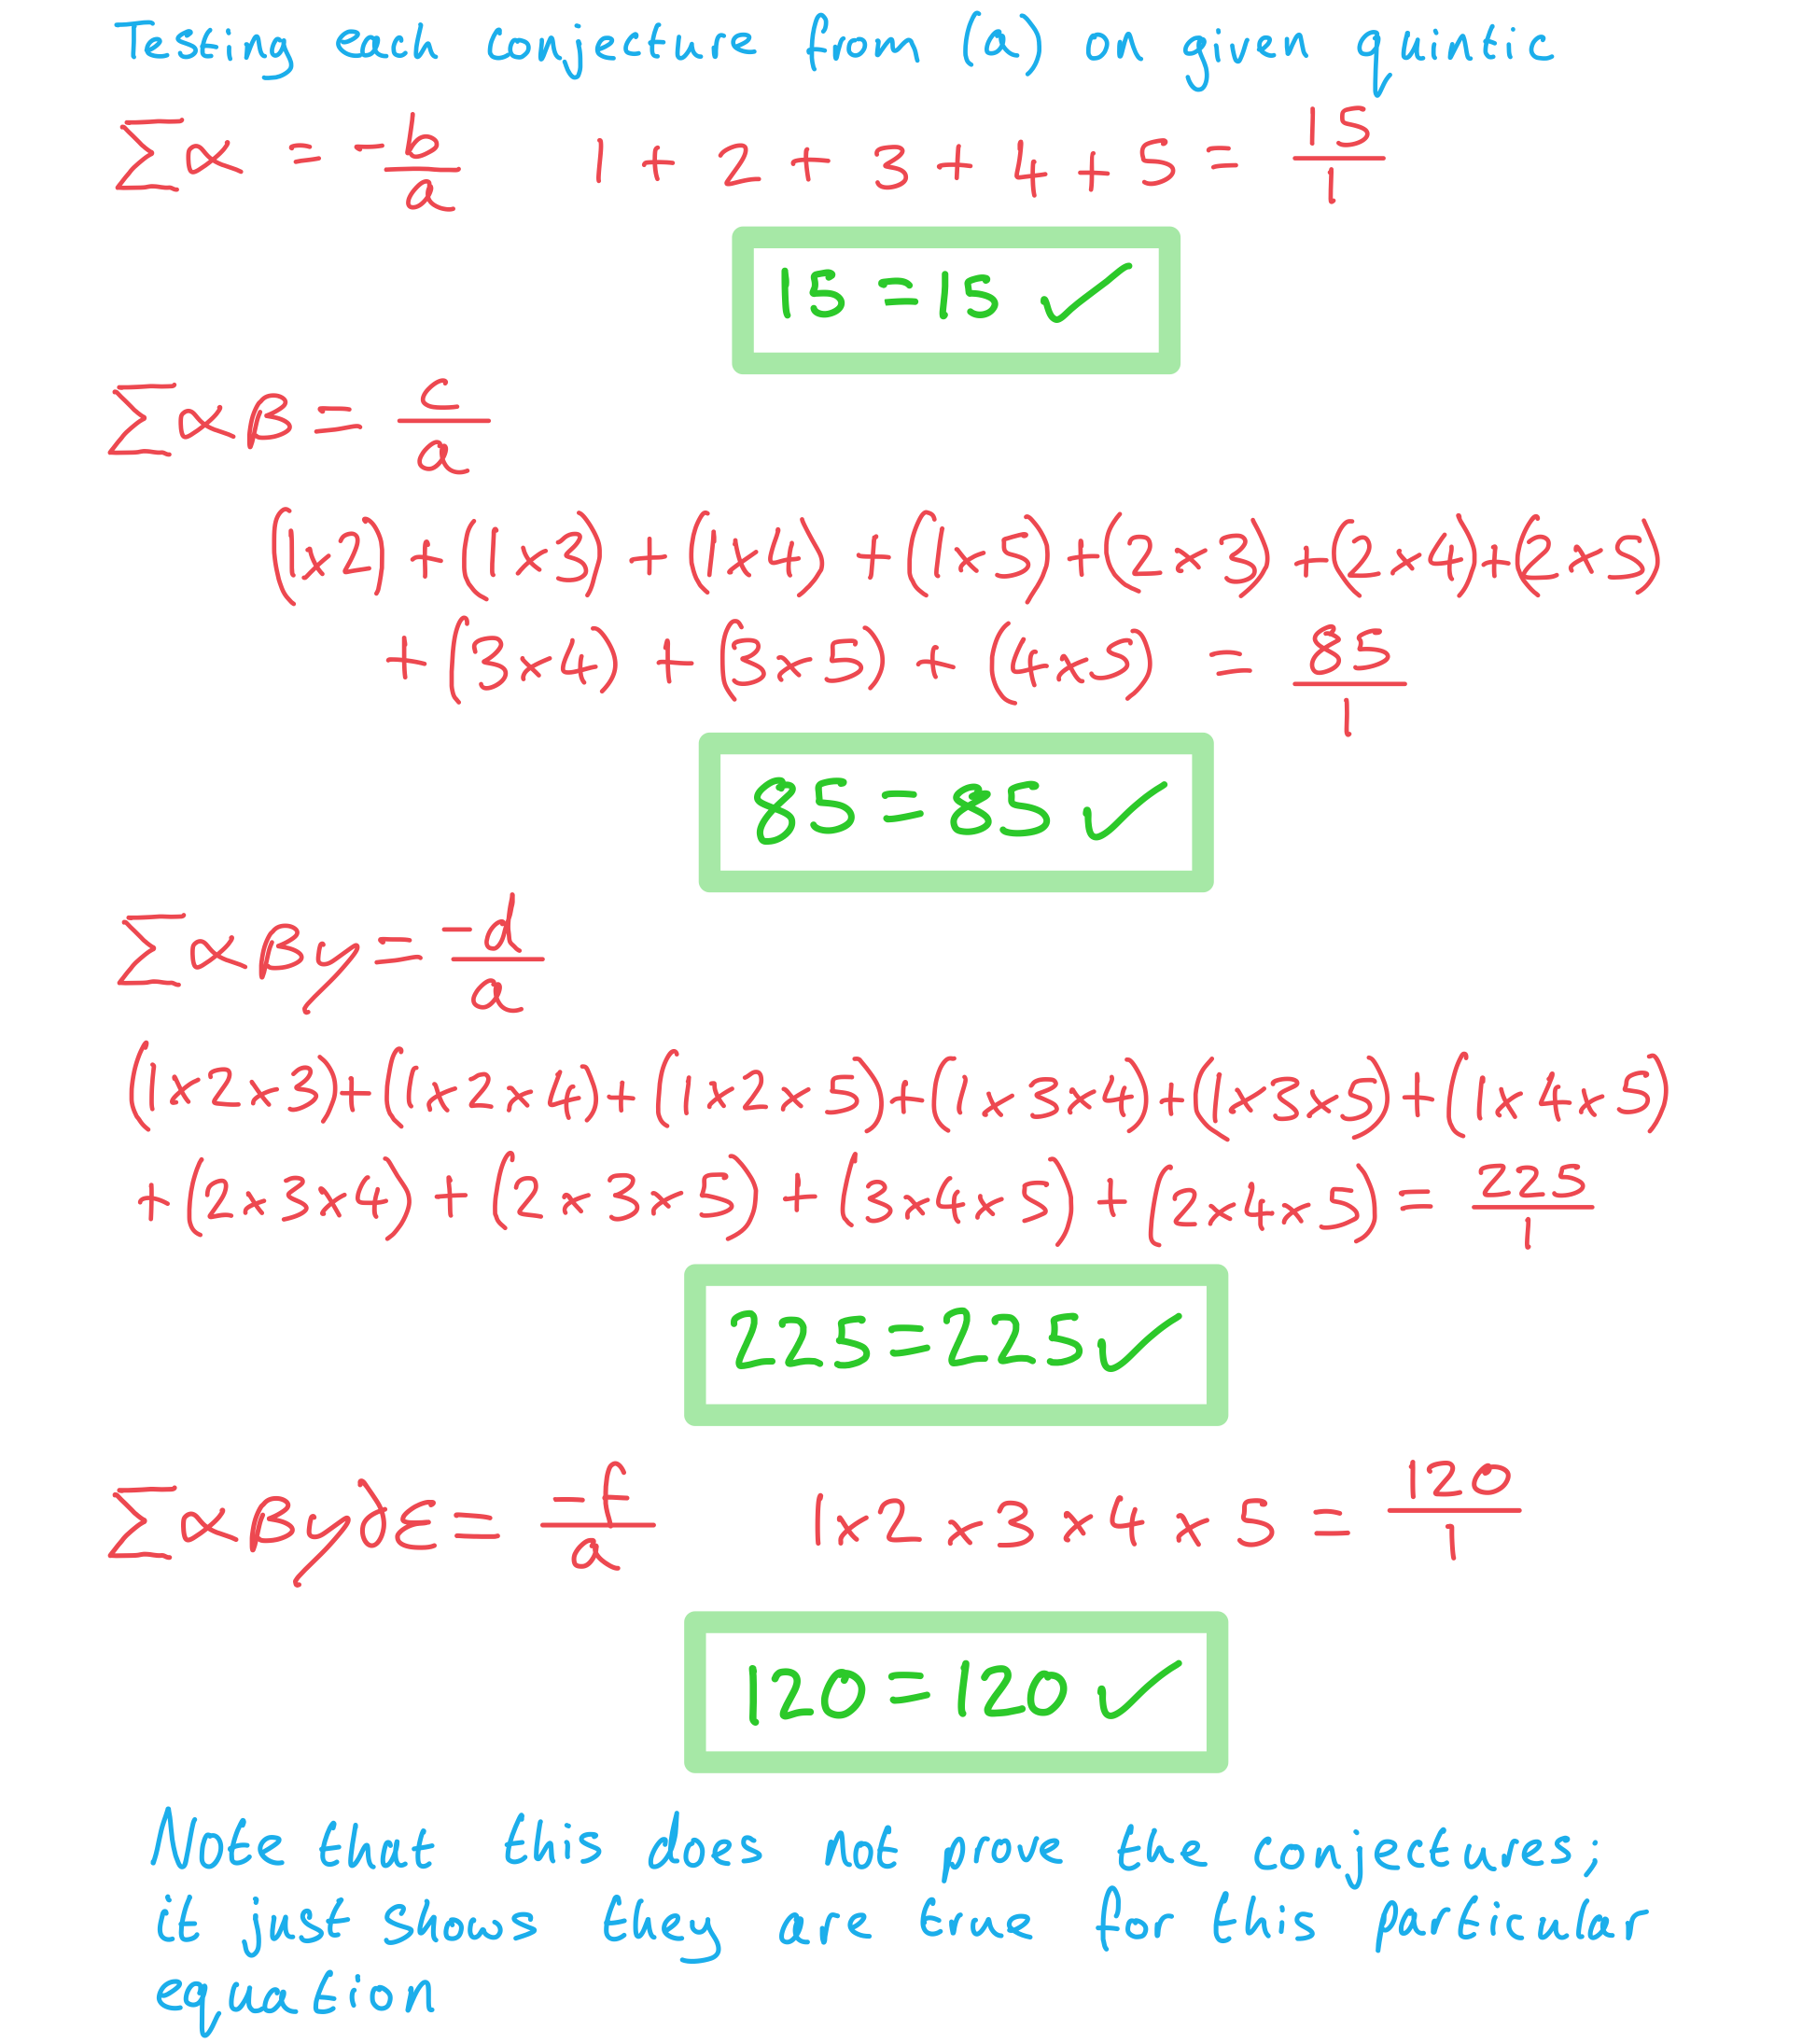 Testing each conjecture from (a) on given quintic
∑α = -b/a 1 + 2 + 3 + 4 + 5 = 15/1
15 = 15 ✓
∑αβ = c/a
(1×2) + (1×3) + (1×4) + (1×5) + (2×3) + (2×4) + (2×5)
+ (3×4) + (3×5) + (4×5) = 85/1
85 = 85 ✓
∑αβγ = -d/a
(1×2×3) + (1×2×4) + (1×2×5) + (1×3×4) + (1×3×5) + (1×4×5)
+ (2×3×4) + (2×3×5) + (3×4×5) + (2×4×5) = 225/1
225 = 225 ✓
∑αβγδε = -f/a 1×2×3×4×5 = 120/1
120 = 120 ✓
Note that this does not prove the conjectures;
it just shows they are true for this particular
equation